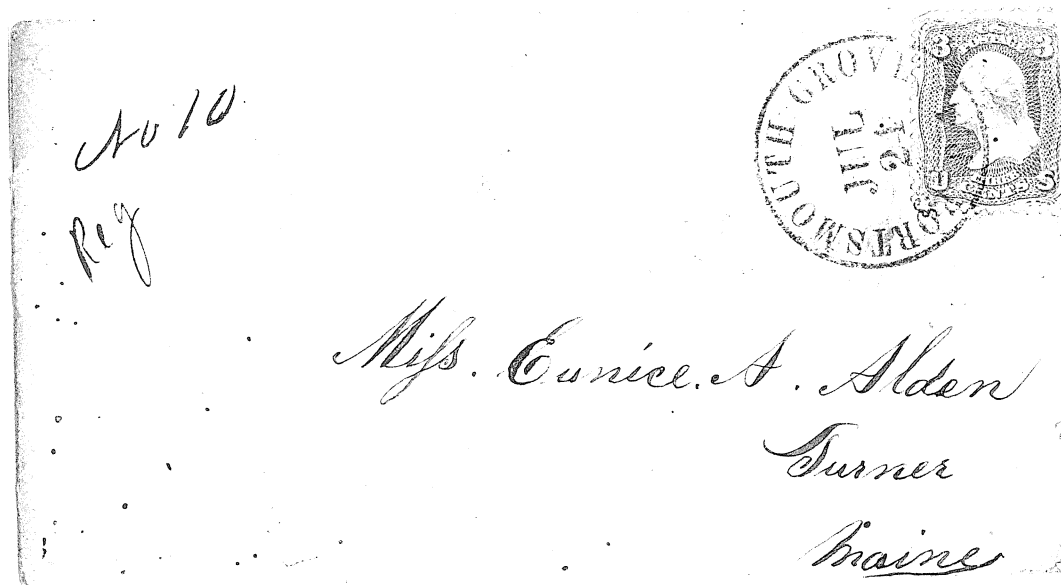 No 10
Reg
PORTSMOUTH GROVE
JUL
21
3 3
U S
CENTS
Miss. Eunice. A. Alden
Turner
Maine